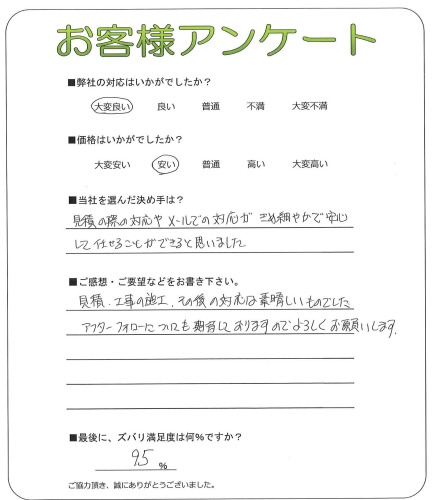 お客様アンケート
■弊社の対応はいかがでしたか？
大変良い 良い 普通 不満 大変不満
■価格はいかがでしたか？
大変安い 安い 普通 高い 大変高い
■当社を選んだ決め手は？
見積の際の対応や メールでの対応が きめ細やかで安心
して任せることができると思いました
■ご感想・ご要望などをお書き下さい。
見積、工事の施工、その後の対応は素晴しいものでした
アフターフォローについても期待しておりますのでよろしくお願いします.
■最後に、ズバリ満足度は何%ですか？
95 %
ご協力頂き、誠にありがとうございました。